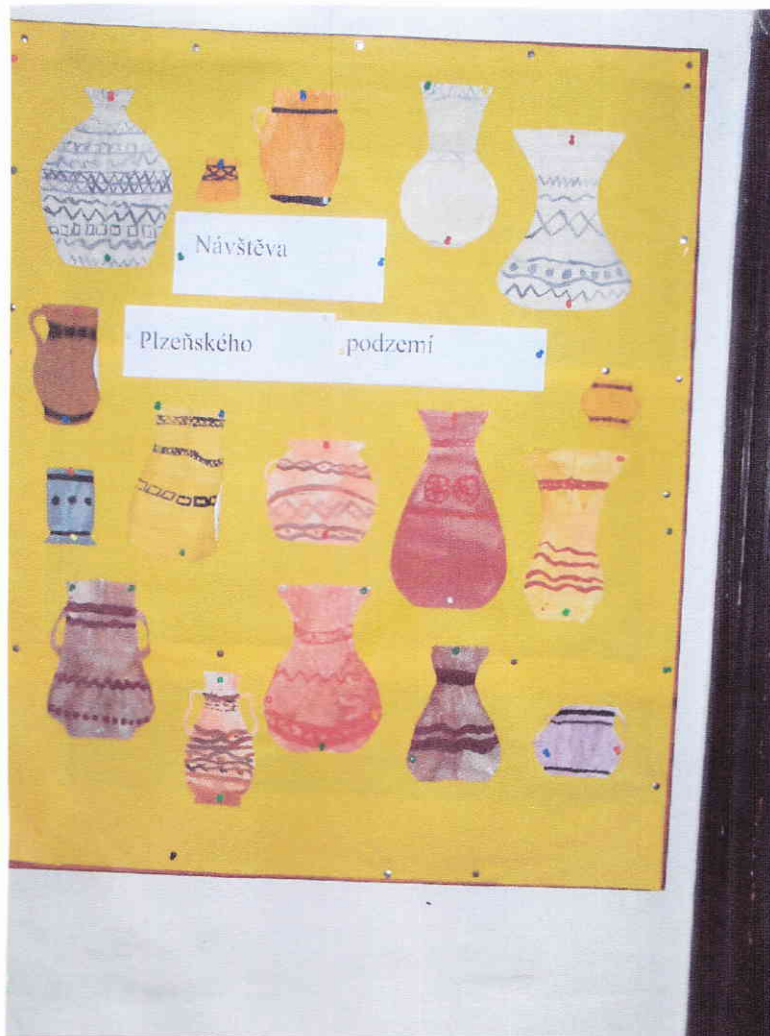 Návštěva
Plzeňského podzemí